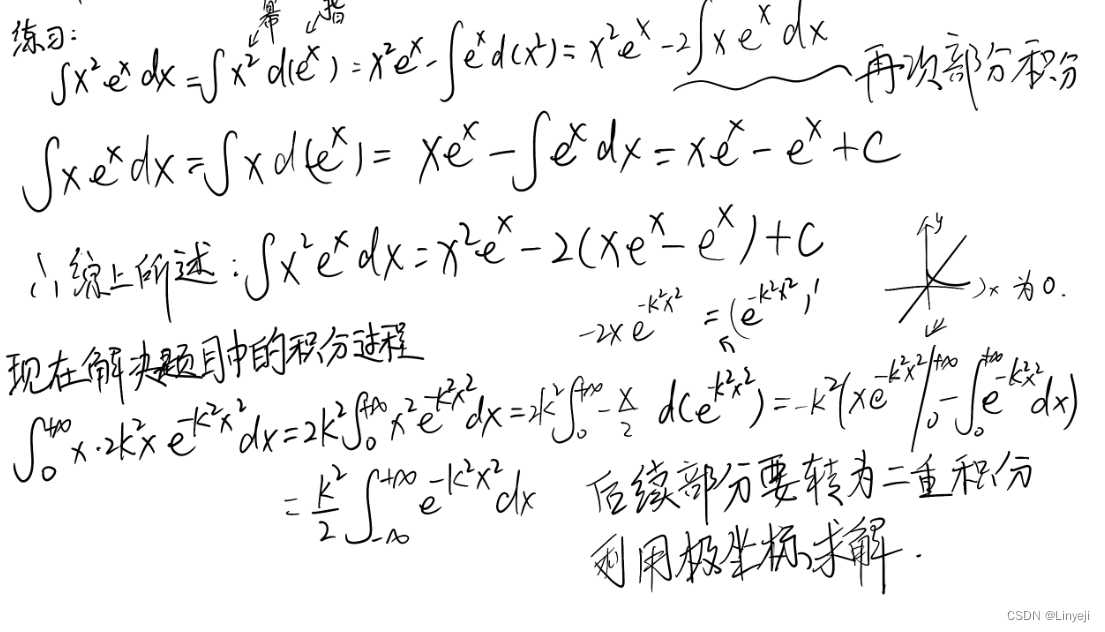 幂 指
练习:
∫x²eˣdx = ∫x²d(eˣ) = x²eˣ - ∫eˣd(x²) = x²eˣ - 2∫xeˣdx 再次部分积分
∫xeˣdx = ∫xd(eˣ) = xeˣ - ∫eˣdx = xeˣ - eˣ + C
综上所述: ∫x²eˣdx = x²eˣ - 2(xeˣ - eˣ) + C
y
x 为0.
-2xe^(-k²x²) = (e^(-k²x²))'
现在解决题目中的积分过程
∫₀^(+∞) x·2k²xe^(-k²x²)dx = 2k²∫₀^(+∞) x²e^(-k²x²)dx = 2k²∫₀^(+∞) -x/2 d(e^(-k²x²)) = -k²(xe^(-k²x²)|₀^(+∞) - ∫₀^(+∞) e^(-k²x²)dx)
= k²/2 ∫_(-∞)^(+∞) e^(-k²x²)dx 后续部分要转为二重积分
利用极坐标求解.
CSDN @Linyeji